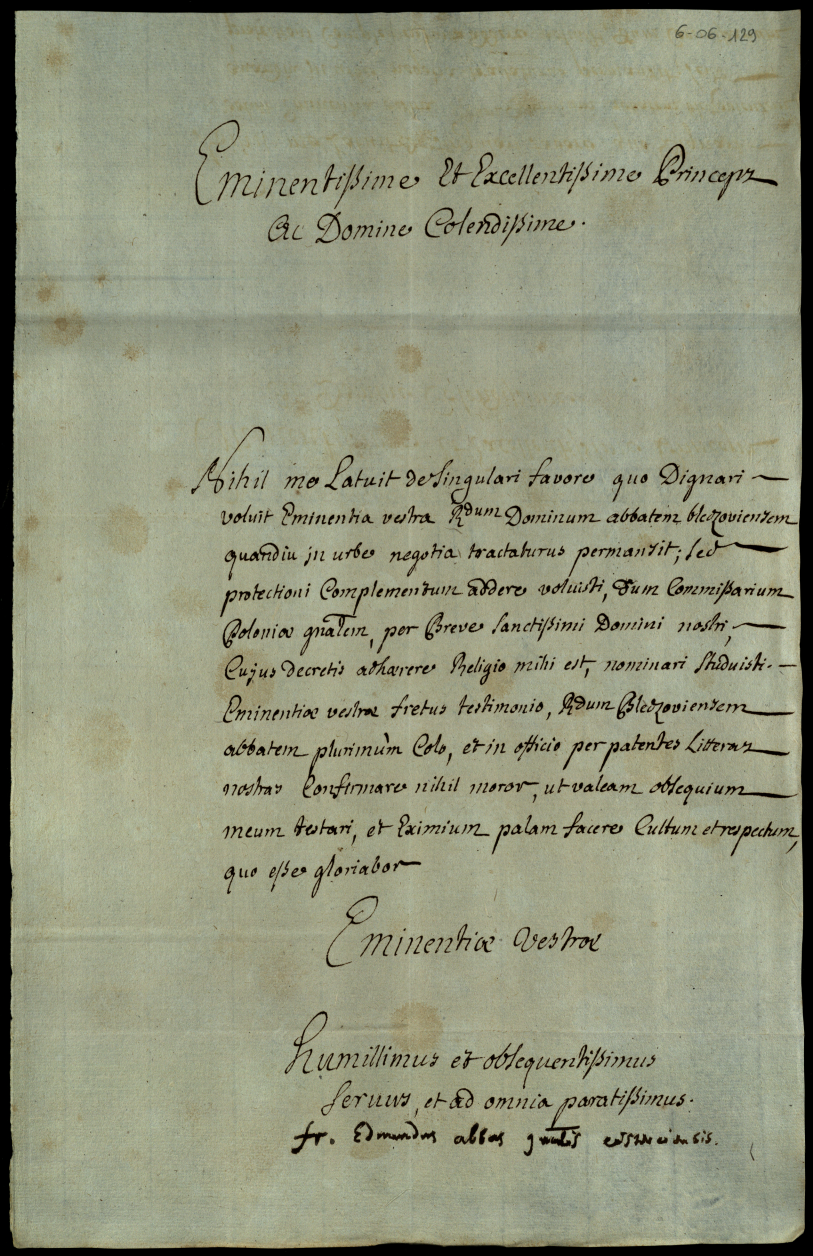 6-06-129
Eminentissime Et Excellentissime Princeps
Ac Domine Colendissime.
Nihil me Latuit de singulari favore quo Dignari
voluit Eminentia vestra Rdum Dominum abbatem bledzoviensem
quandiu jn urbe negotia tractaturus permansit; sed
protectioni Complementum addere voluisti, dum Commissarium
Poloniæ gnalem, per Breve sanctissimi Domini nostri,
Cujus decretis adhærere Religio mihi est, nominari studuisti.
Eminentiæ vestræ fretus testimonio, Rdum Bledzoviensem
abbatem plurimùm Colo, et in officio per patentes Litteras
nostras Confirmare nihil moror, ut valeam obsequium
meum testari, et Eximium palam facere Cultum et respectum,
quo esse gloriabor
Eminentiæ Vestræ
humillimus et obsequentissimus
servus, et ad omnia paratissimus.
fr. Edmundus abbas gnalis cisterciensis.